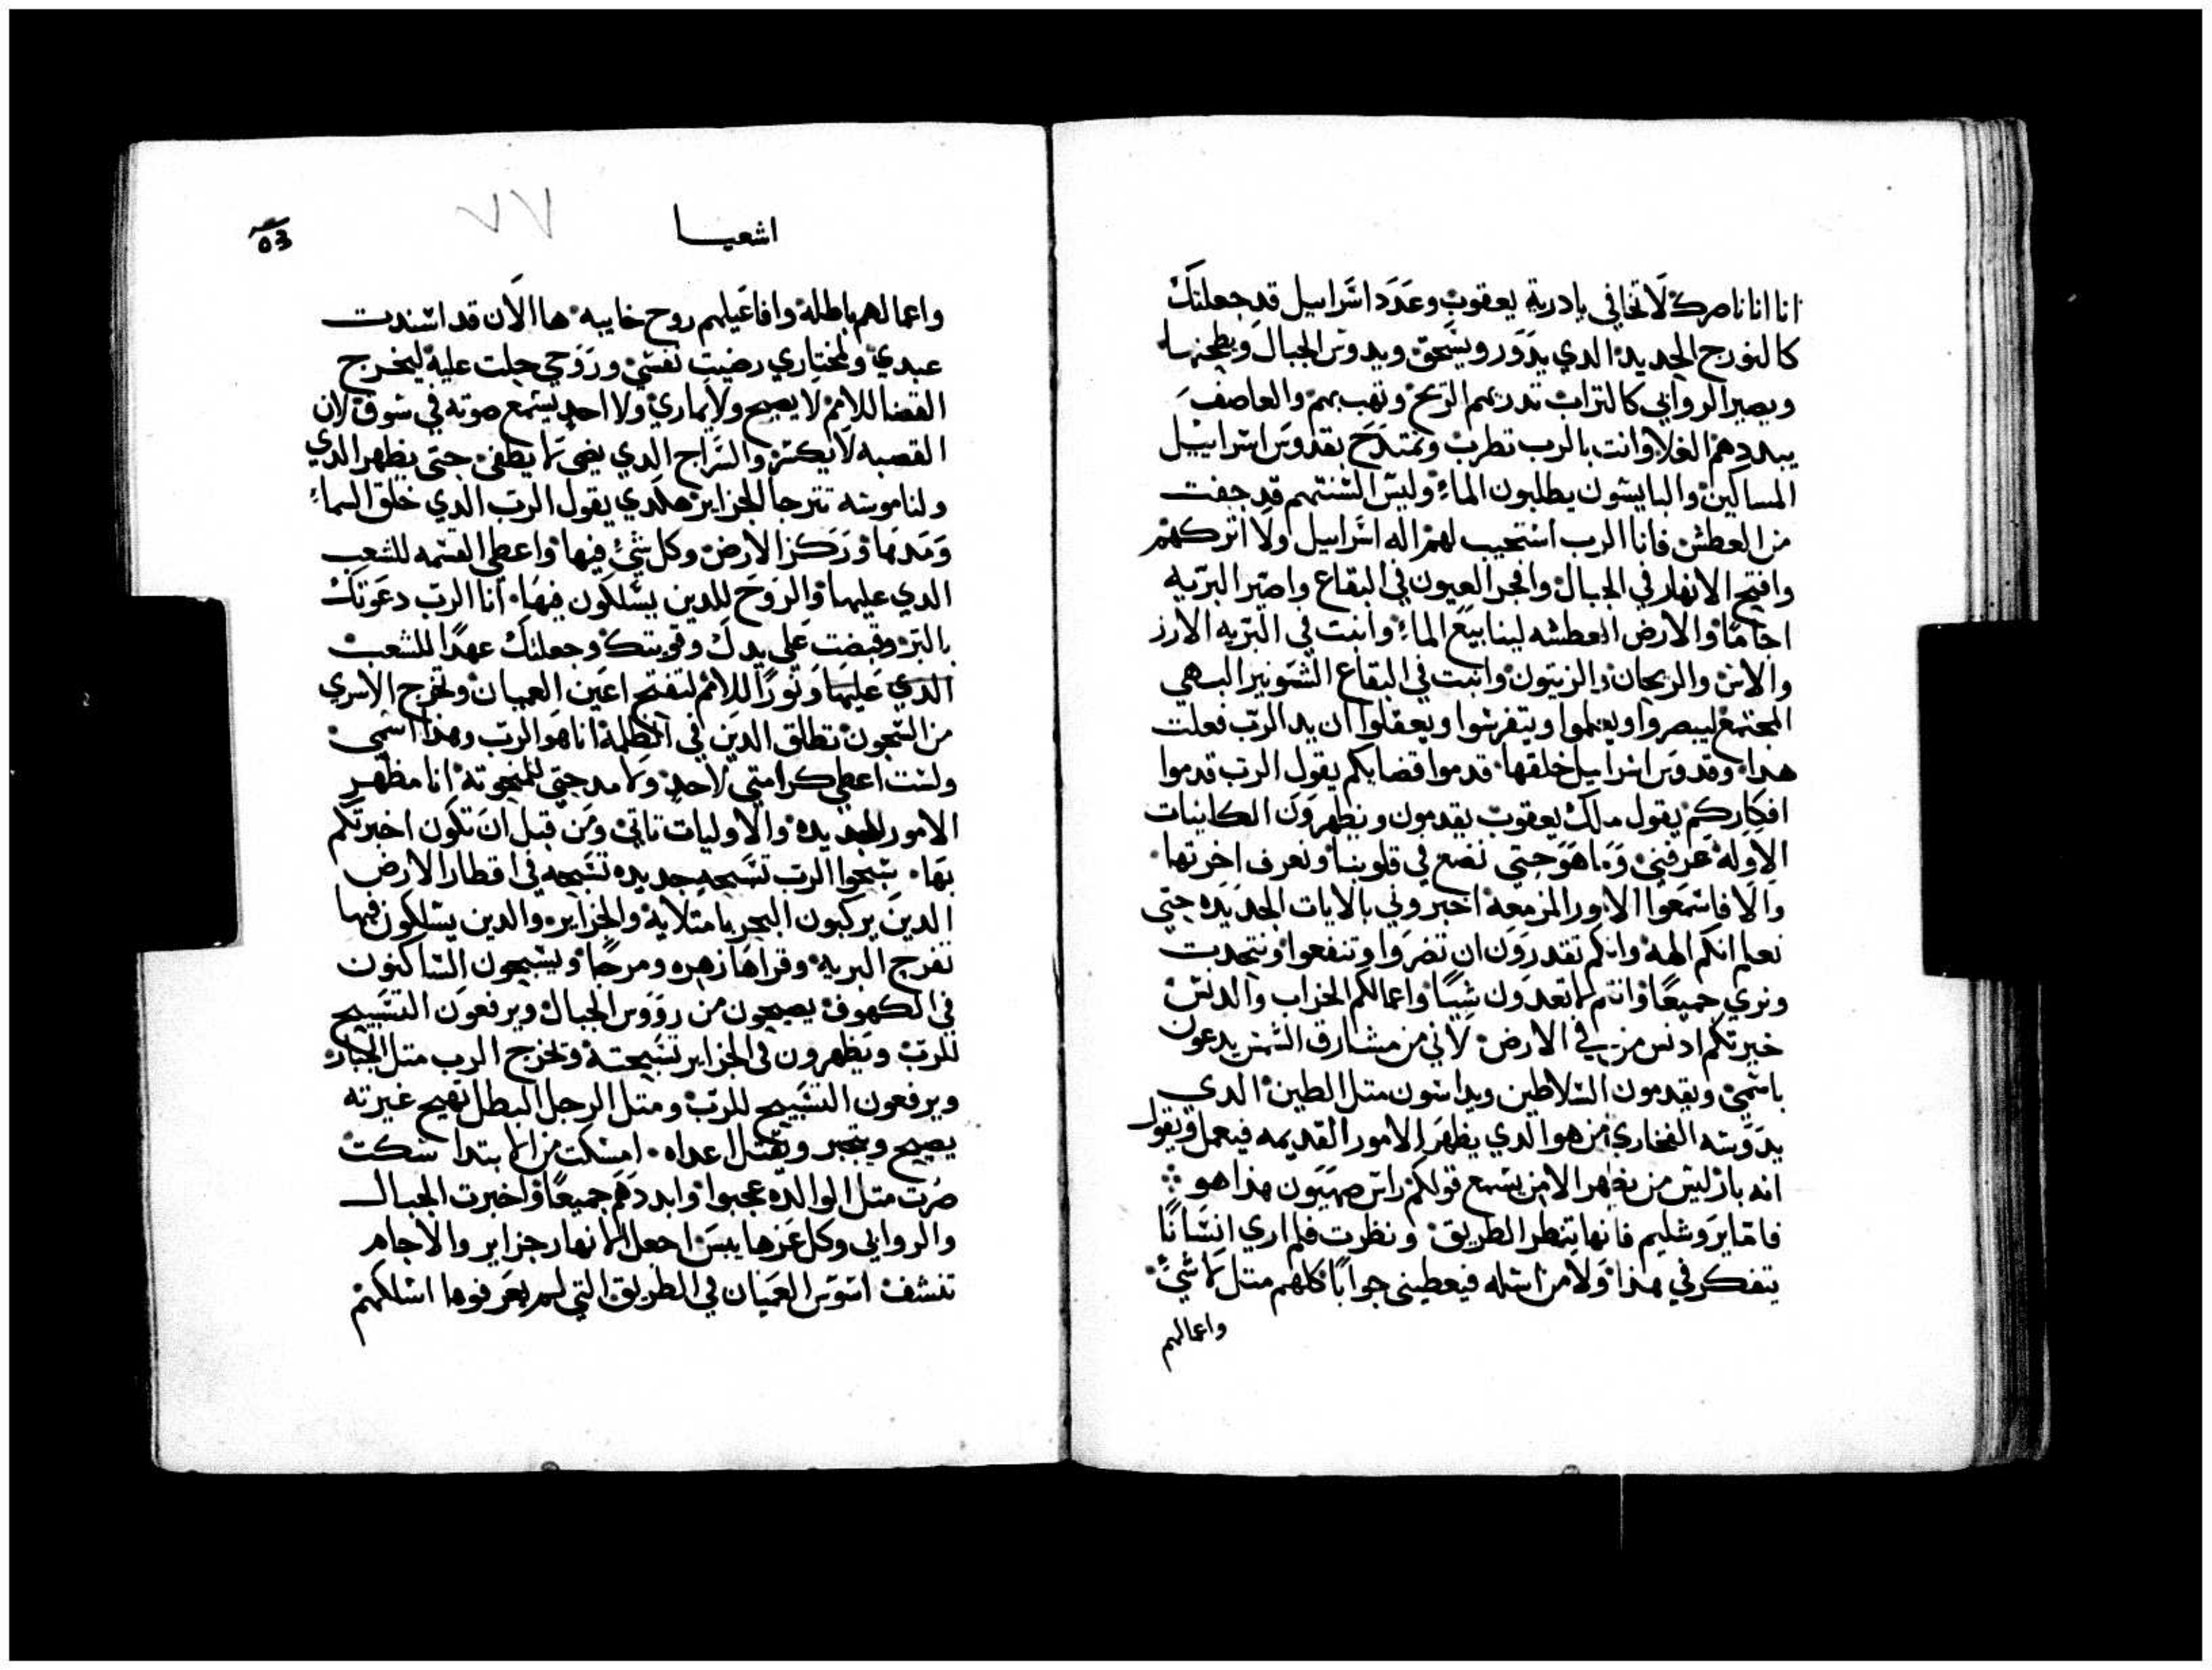 انا اناناصرك لاتخافي يادرية يعقوب وعدد اسراييل قد جعلتك
كالنورج الجديد الدي يدور ويسحق ويدوس الجبال ويطحنها
ويصير الروابي كالتراب تدريهم الريح وتهب بهم والعاصف
يبددهم الغلا وانت بالرب تطرب وتمتدح بقدوس اسراييل
المساكين والبايسون يطلبون الماء وليس السنتهم قد جفت
من العطش فانا الرب استجيب لهم اله اسراييل ولا اتركهم
وافتح الانهار في الجبال وافجر العيون في البقاع واصير البريه
اجاما والارض العطشه لينابيع الماء وانبت في البريه الارز
والاس والريحان والزيتون وانبت في البقاع الشوبير البهي
المجتمع ليبصروا ويعلموا ويتفرسوا ويعقلوا ان يد الرب فعلت
هدا وقدوس اسراييل خلقها قدموا قضاياكم يقول الرب قدموا
افكاركم يقول ملك يعقوب يقدمون ويظهرون الكاينات
الاوله عرفني وما هو حتى نضع في قلوبنا ونعرف اخرتها
والا فاسمعوا الامور المزمعه اخبروني بالايات الجديده حتى
نعلم انكم الهه وانكم تقدرون ان تضروا وتنفعوا ونتحدت
ونري جميعا وانتم لا تعدون شيا واعمالكم الخراب والدنس
خيرتكم ادنس من في الارض لاني من مشارق الشمس يدعون
باسمي ويقدمون السلاطين ويداسون متل الطين الدي
يدوسه الفخاري من هو الدي يظهر الامور القديمه فيعمل ويقول
انه بار ليس من يظهر الا من يسمع قولكم راس صهيون هدا هو
فاما يروشليم فانها تنظر الطريق ونظرت فلم اري انسانا
يتفكر في هدا ولا من اسله فيعطيني جوابا كلهم متل لا شي
واعمالهم
اشعيا
٧٧
واعمالهم باطله وافاعيلهم روح خايبه ها الان قد اسندت
عبدي ومختاري رضيت نفسي وروحي حلت عليه ليخرج
القضا للامم لا يصيح ولا يماري ولا احد يسمع صوته في سوق لان
القصبه لا يكسر والسراج الدي يضي لا يطفي حتى يظهر الدي
ولناموسه تترجا الجزاير هكدي يقول الرب الدي خلق السماء
ومدها وركز الارض وكل شي فيها واعطي القسمه للشعب
الدي عليها والروح للدين يسلكون فيها انا الرب دعوتك
بالبر وقبضت على يدك وقويتك وجعلتك عهدا للشعب
الدي عليها ونورا للامم لتفتح اعين العميان وتخرج الاسري
من السجون تطلق الدين في الظلمه انا هو الرب وهدا اسمي
ولست اعطي كرامتي لاحد ولا مدحتي للمنحوته انا مظهر
الامور الجديده والاوليات تاتي ومن قبل ان تكون اخبرتكم
بها سبحوا الرب تسبحه جديده تسبحه في اقطار الارض
الدين يركبون البحر يا متلايه والجزاير والدين يسلكون فيها
تفرح البريه وقراها زهره ومرحا ويسبحون الساكنون
في الكهوف يصيحون من رووس الجبال ويرفعون التسبيح
للرب ويظهرون في الجزاير تسبحته وتخرج الرب متل الجبار
ويرفعون التسبيح للرب ومتل الرجل البطل تهيج غيرته
يصيح ويتجبر ويقتل اعداه امسكت من الابتدا سكت
صرت متل الوالده عجبوا وابددهم جميعا واخبرت الجبال
والروابي وكل عزها يبس اجعل الانهار جزاير والاجام
تنشف اسوس العميان في الطريق التي لم يعرفوها اسلكهم